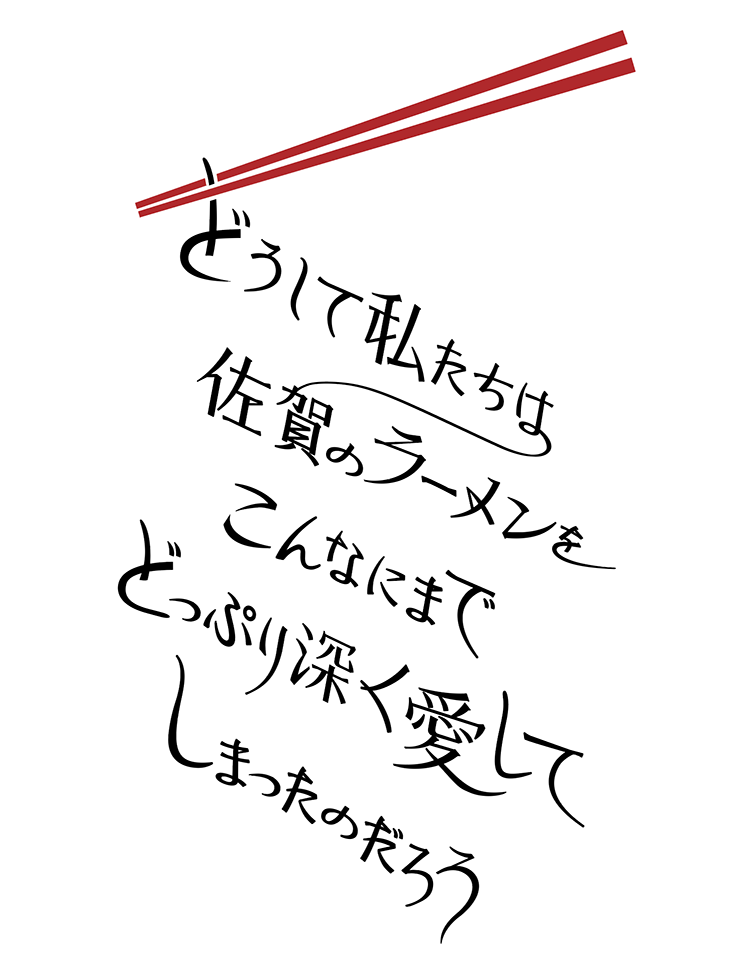 どうして私たちは
佐賀のラーメンを
こんなにまで
どっぷり深く愛して
しまったのだろう